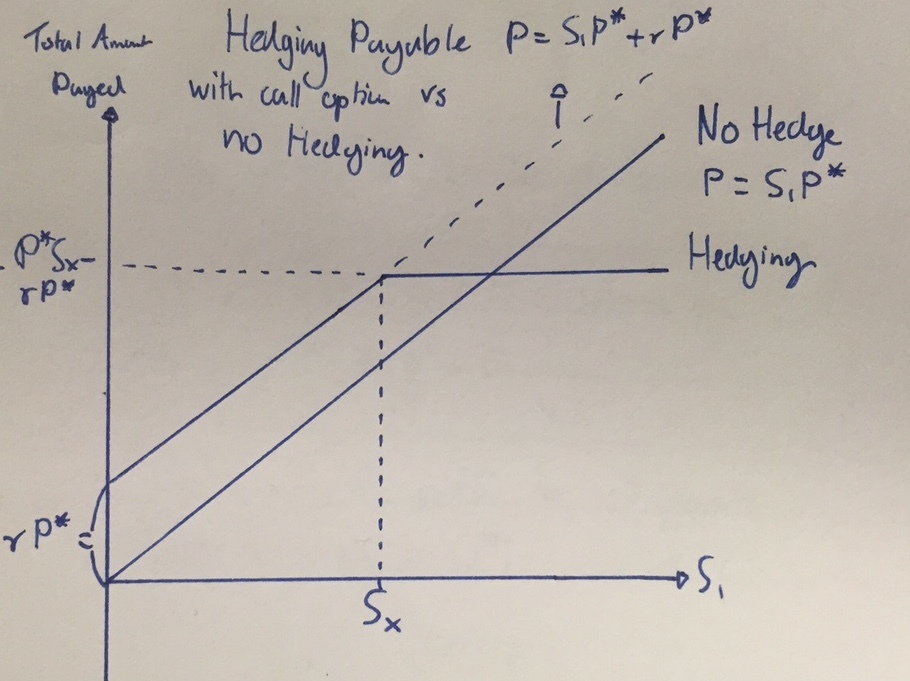 Total Amount
Payed
Hedging Payable P = S₁P* + rP*
with call option vs
no Hedging.
No Hedge
P = S₁P*
P*Sx
rP*
Hedging
rP* =
Sx
S₁